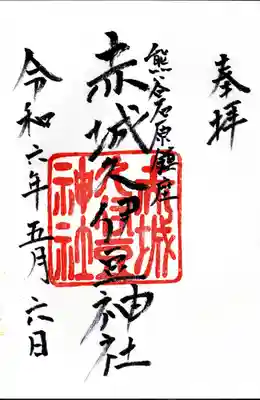 奉拝
熊谷石原鎮座
赤城久伊豆神社
赤城
久伊豆
神社
令和六年五月六日